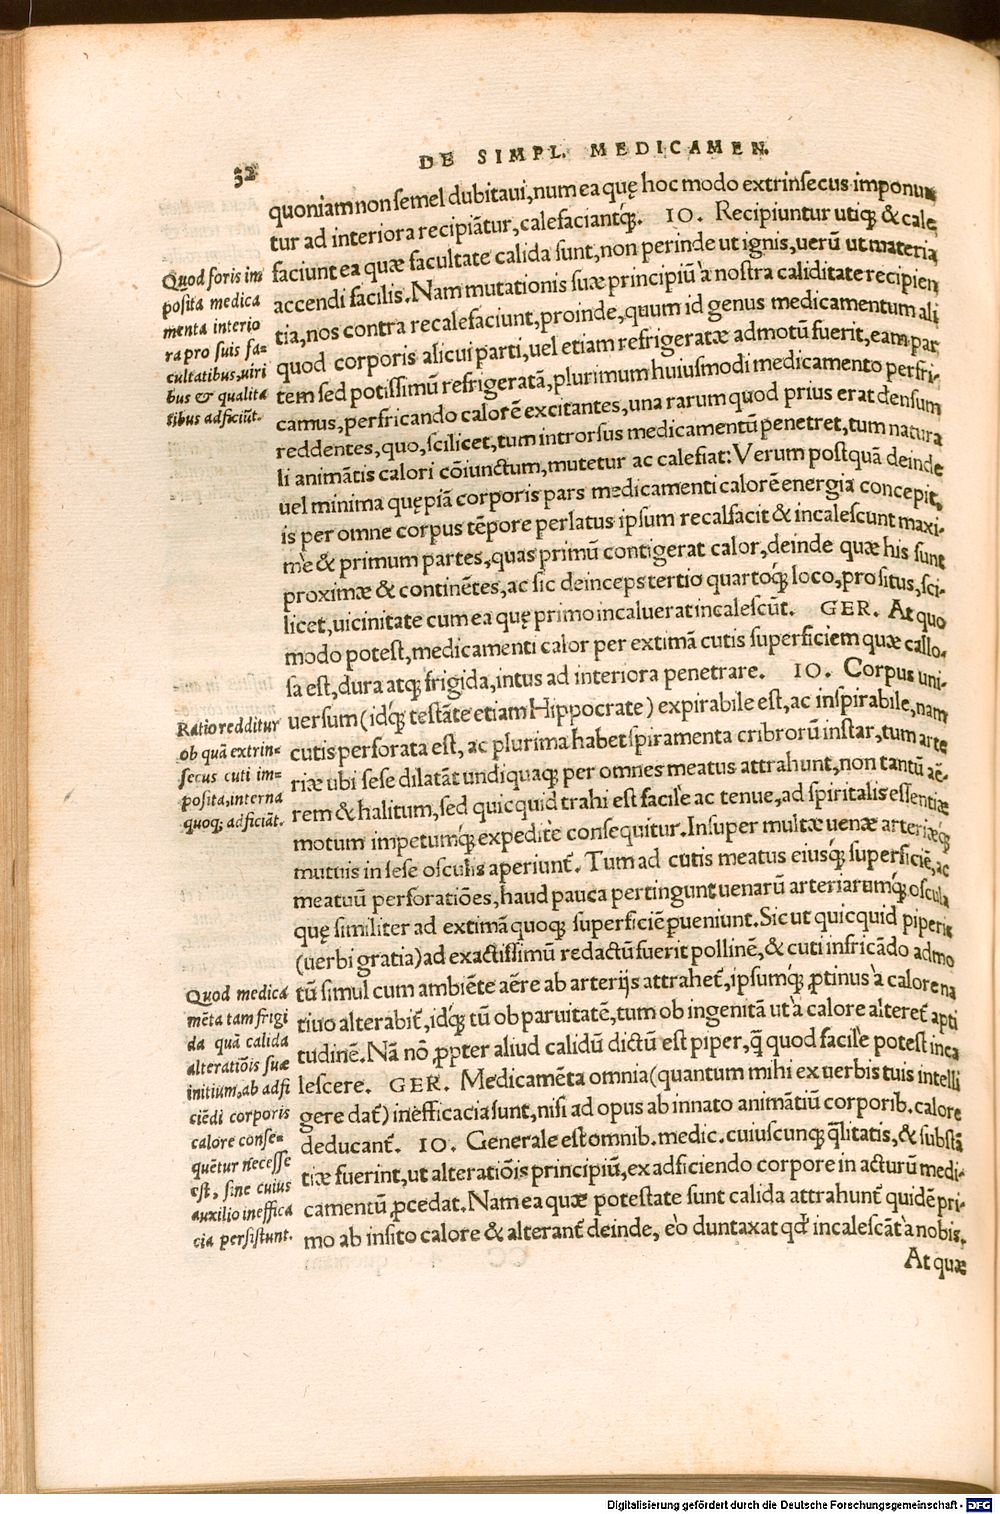 32
DE SIMPL. MEDICAMEN.
quoniam non semel dubitaui, num ea quę hoc modo extrinsecus imponun
tur ad interiora recipiãtur, calefaciantq́;. IO. Recipiuntur utiq; & cale
faciunt ea quæ facultate calida sunt, non perinde ut ignis, uerũ ut materia
accendi facilis. Nam mutationis suæ principiũ à nostra caliditate recipien
tia, nos contra recalefaciunt, proinde, quum id genus medicamentum ali
quod corporis alicui parti, uel etiam refrigeratæ admotũ fuerit, eam par
tem sed potissimũ refrigeratã, plurimum huiusmodi medicamento perfri-
camus, perfricando calorẽ excitantes, una rarum quod prius erat densum
reddentes, quo, scilicet, tum introrsus medicamentũ penetret, tum natura
li animãtis calori cõiunctum, mutetur ac calefiat: Verum postquã deinde
uel minima quępiã corporis pars medicamenti calorẽ energia concepit,
is per omne corpus tẽpore perlatus ipsum recalfacit & incalescunt maxi-
mè & primum partes, quas primũ contigerat calor, deinde quæ his sunt
proximæ & continẽtes, ac sic deinceps tertio quartoq́; loco, pro situs, sci-
licet, uicinitate cum ea quę primo incaluerat incalescũt. GER. At quo
modo potest, medicamenti calor per extimã cutis superficiem quæ callo-
sa est, dura atq; frigida, intus ad interiora penetrare. IO. Corpus uni-
uersum (idq́; testãte etiam Hippocrate) expirabile est, ac inspirabile, nam
cutis perforata est, ac plurima habet spiramenta cribrorũ instar, tum arte
riæ ubi sese dilatãt undiquaq; per omnes meatus attrahunt, non tantũ aë-
rem & halitum, sed quicquid trahi est facile ac tenue, ad spiritalis essentiæ
motum impetumq́; expedite consequitur. Insuper multæ uenæ arteriæq́;
mutuis in sese osculis aperiunt̃. Tum ad cutis meatus eiusq́; superficiẽ, ac
meatuũ perforatiões, haud pauca pertingunt uenarũ arteriarumq́; oscula
quę similiter ad extimã quoq; superficiẽ ꝑueniunt. Sic ut quicquid piperis
(uerbi gratia) ad exactissimũ redactũ fuerit pollinẽ, & cuti infricãdo admo
tũ simul cum ambiẽte aëre ab arterijs attrahet̃, ipsumq́; ꝓtinus à calore na
tiuo alterabit̃, idq́; tũ ob paruitatẽ, tum ob ingenitã ut à calore alteret̃ apti
tudinẽ. Nã nõ ꝓpter aliud calidũ dictũ est piper, q̃ quod facile potest inca
lescere. GER. Medicamẽta omnia (quantum mihi ex uerbis tuis intelli
gere dat̃) inefficacia sunt, nisi ad opus ab innato animãtiũ corporib. calore
deducant̃. IO. Generale est omnib. medic. cuiuscunq; q̃litatis, & substã
tiæ fuerint, ut alteratiõis principiũ, ex adficiendo corpore in acturũ medi-
camentũ ꝓcedat. Nam ea quæ potestate sunt calida attrahunt̃ quidẽ pri-
mo ab insito calore & alterant̃ deinde, eò duntaxat qđ incalescãt à nobis.
At quæ
Quod foris im
posita medica
menta interio
ra pro suis fa-
cultatibus, uiri
bus & qualita
tibus adficiũt.
Ratio redditur
ob quã extrin-
secus cuti im-
posita, interna
quoq; adficiãt.
Quod medica
mẽta tam frigi
da quã calida
alteratiõis suæ
initium, ab adfi
ciẽdi corporis
calore conse-
quẽtur necesse
est, sine cuius
auxilio ineffica
cia persistunt.
Digitalisierung gefördert durch die Deutsche Forschungsgemeinschaft - DFG